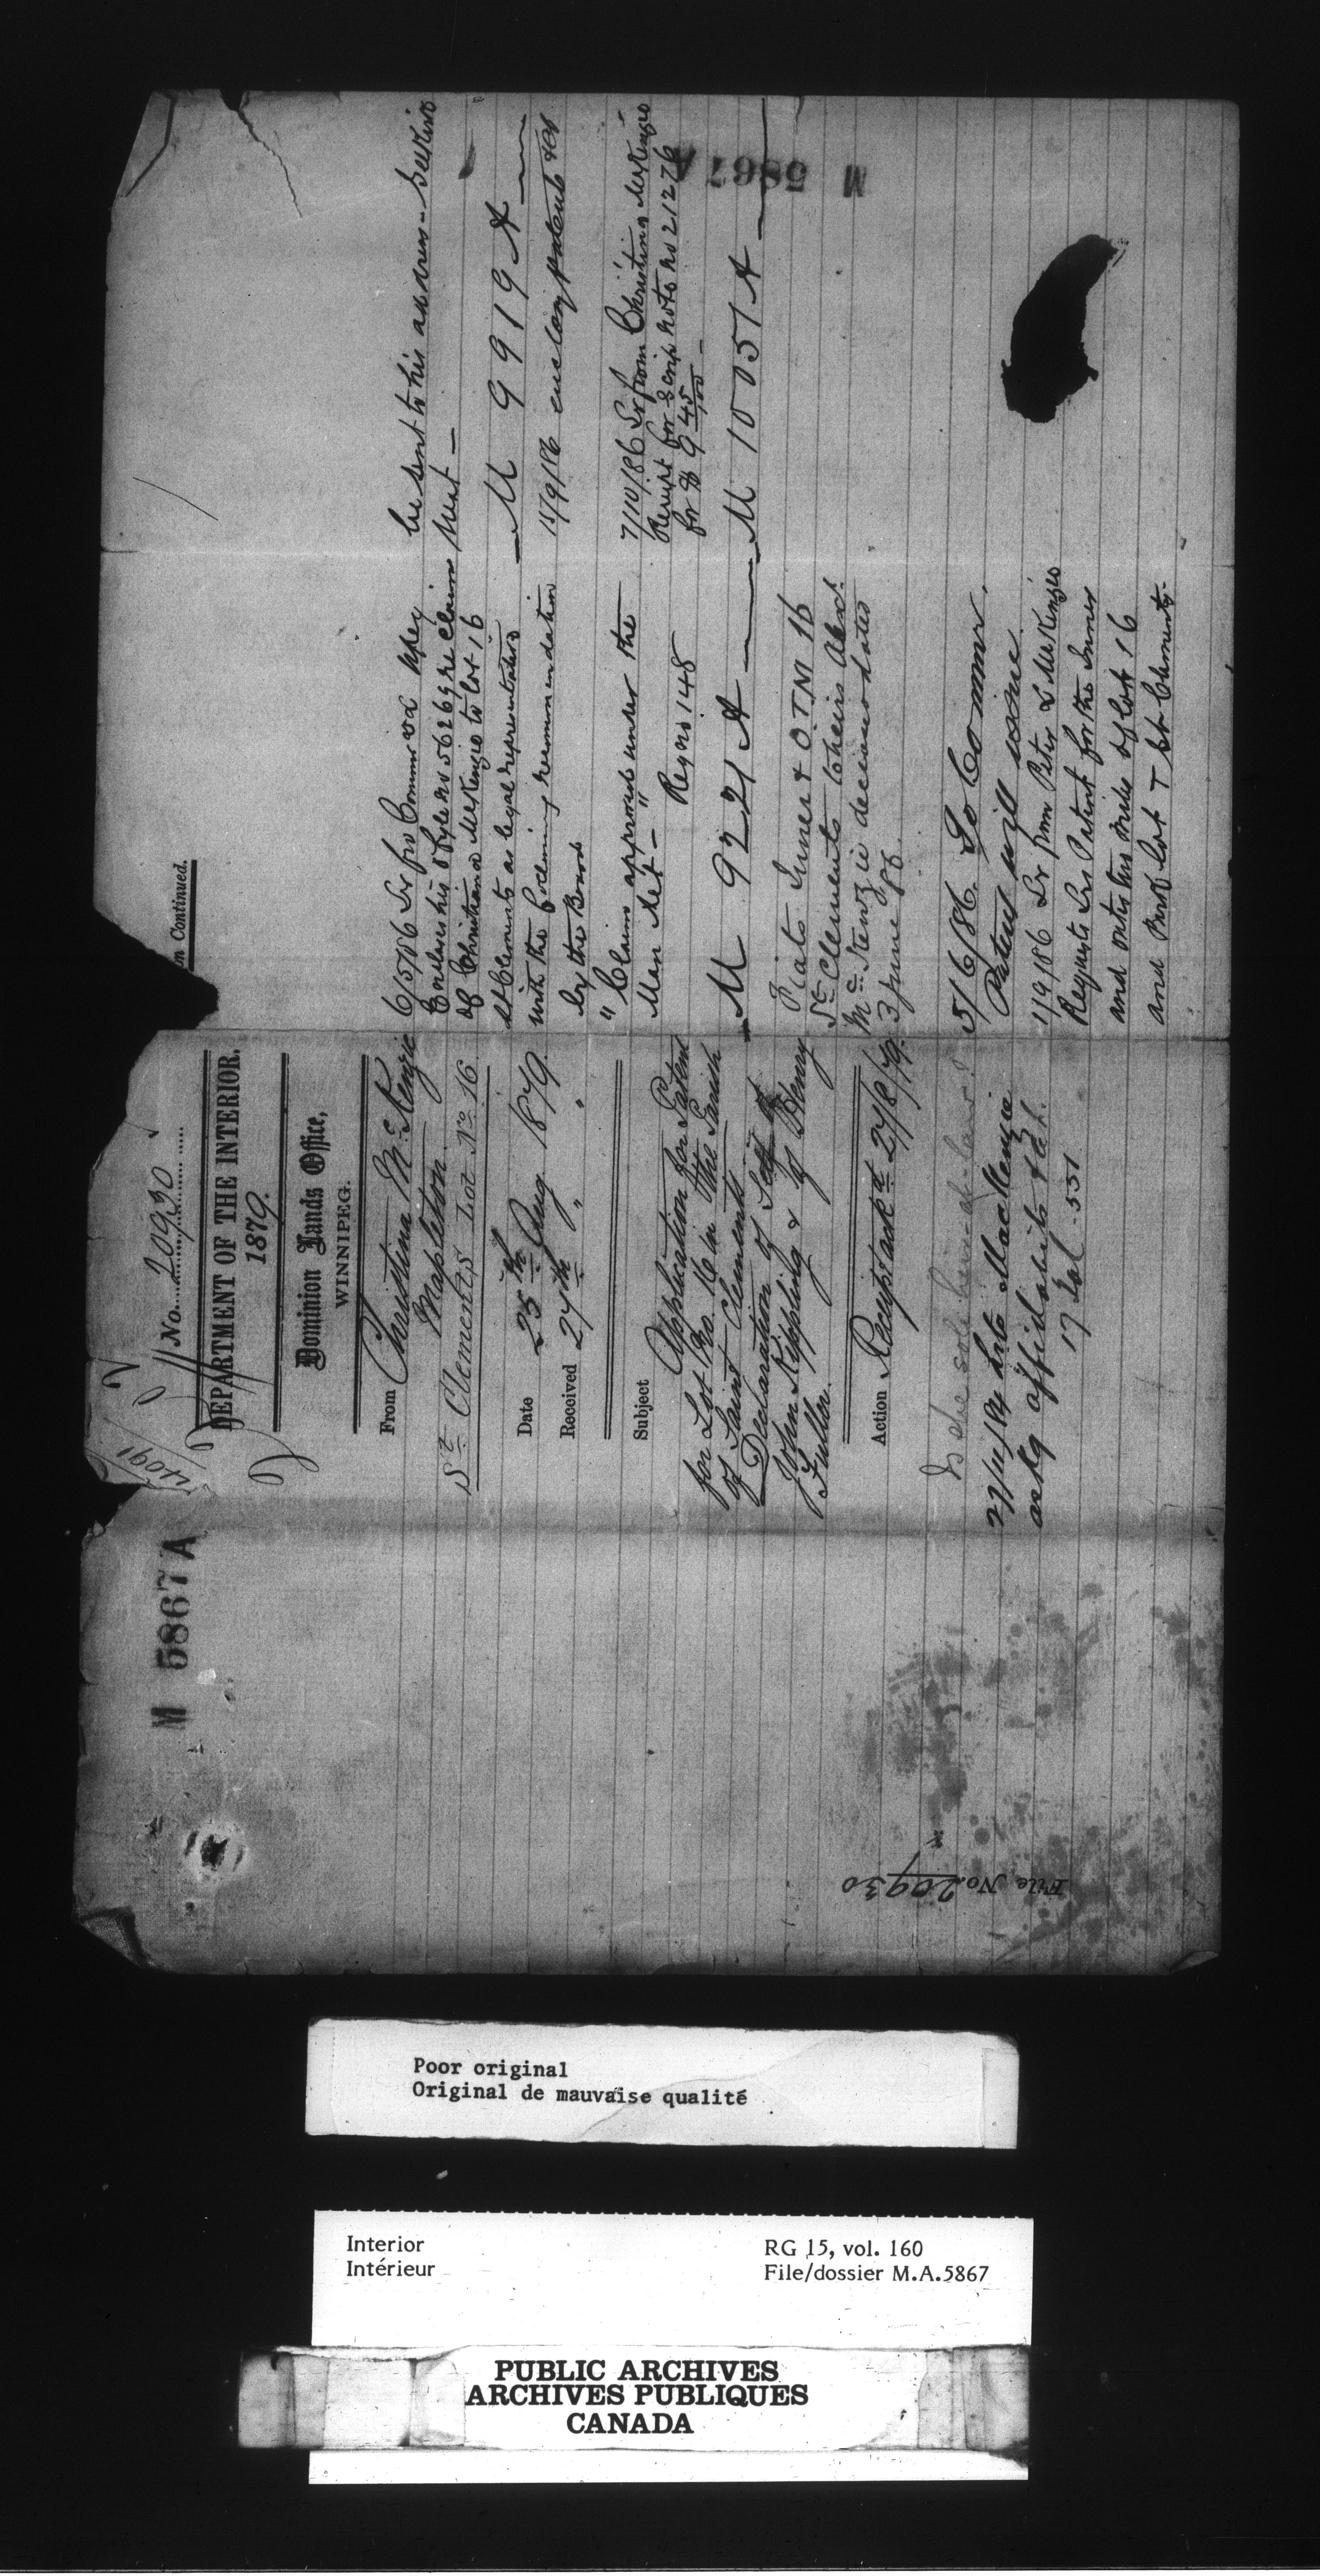 M 5867 A
4091
No. 20930
DEPARTMENT OF THE INTERIOR.
1879.
Dominion Lands Office,
WINNIPEG.
From Christina McKenzie
Mapleton
St Clements Lot No 16
Date 25th Aug 1879.
Received 27th " "
Subject Application for Patent
for Lot No. 16 in the Parish
of Saint Clements
Declaration of Self &
John Kippling & of Henry
Fuller.
Action Receipt ackd 27/8/79.
Is she sole heir-at-law?
27/11/84 Lre to MacKenzie
askg affidavits &c.
17 fol - 551
Continued.
6/5/86 Lr fro Commr
Encloses hisofyle no 56269 re claim
of Christiana McKenzie to lot 16
St Clements as legal representative
with the following recommendation
by the Board
" Claim approved under the
Man Act — " Reg no 148
M 9221 A
Fiats Inner & O.T.M 16
St Clements to heirs Alexr
McKenzie deceased dated
3 June '86.
5/6/86. To Commr.
Patent will issue.
1/9/86 Lr from Peter McKenzie
Requests Lrs Patent for the Inner
and outer two miles of lot 16
and Part Lot T St Clements.
be sent to his address Selkirk
M 9919 A
15/9/86 enclosing patents
7/10/86 Lr from Christina McKenzie
Receipt for Scrip note no 21276
for $ 9 45/100
M 10057 A
M 5867 A
File No. 20930
Poor original
Original de mauvaise qualité
Interior
Intérieur
RG 15, vol. 160
File/dossier M.A.5867
PUBLIC ARCHIVES
ARCHIVES PUBLIQUES
CANADA